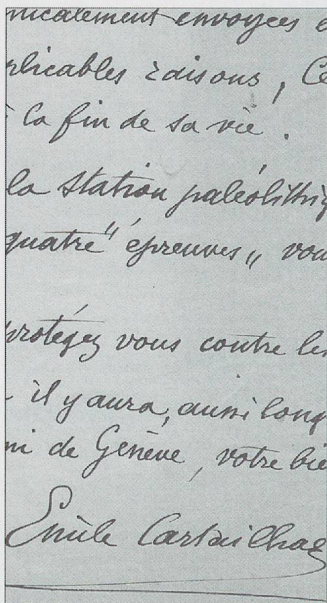 nicalement envoyées e
plicables raisons, Ce
à la fin de sa vie.
la station paléolithiq
quatre "épreuves" vou
protégez vous contre les
il y aura, aussi long
mi de Genève, votre bie
Emile Cartailhac